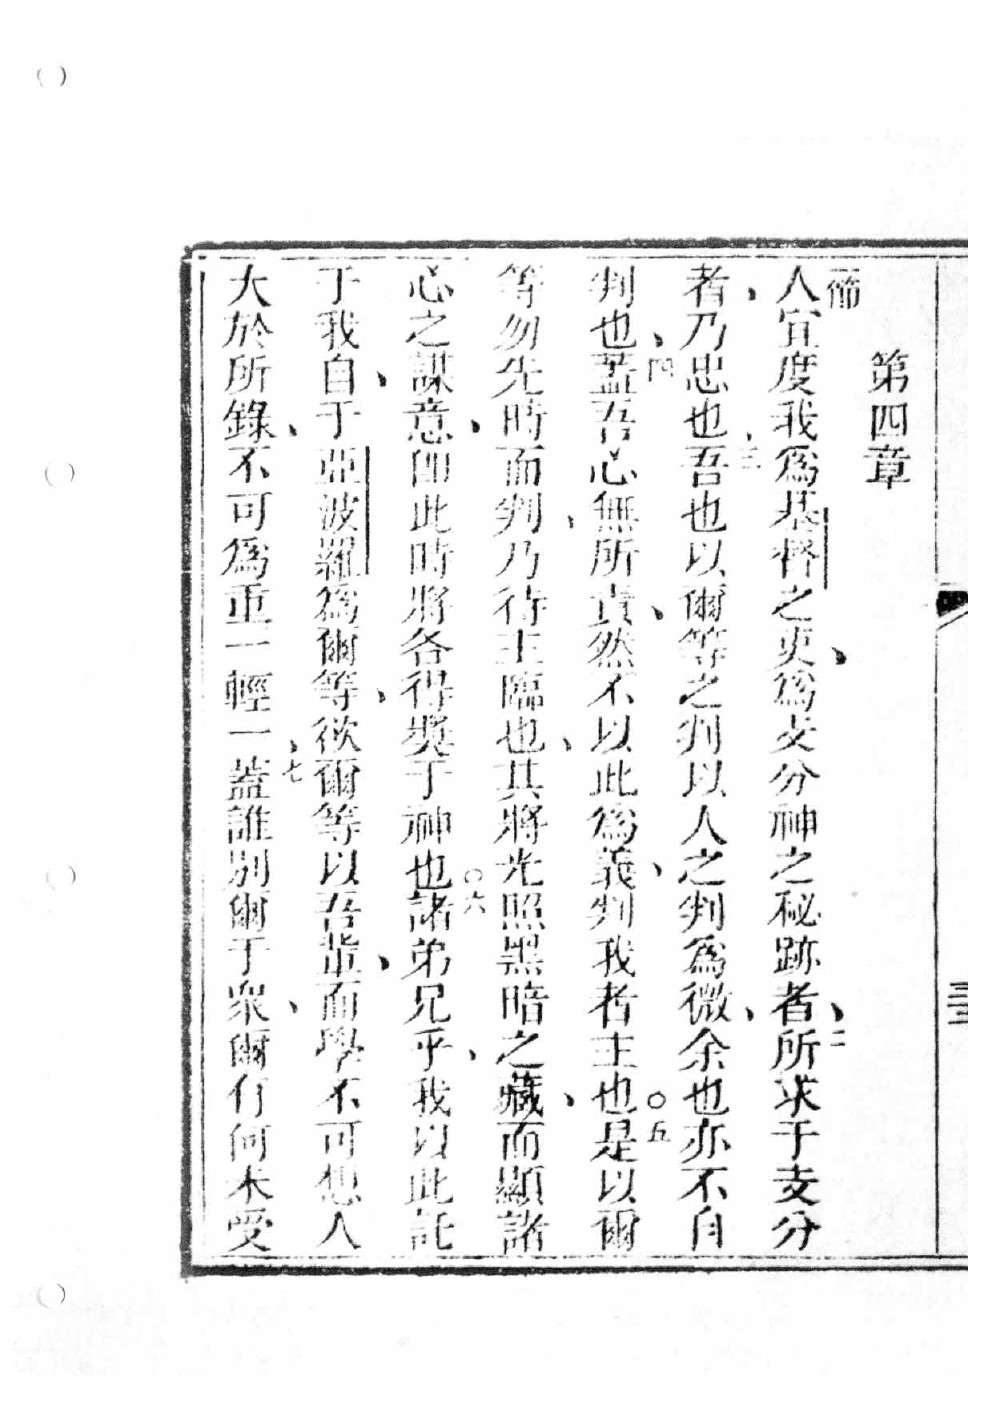 第四章
一節
人宜度我爲基督之吏、爲支分神之秘跡者、二所求于支分
者、乃忠也、三吾也以爾等之判以人之判爲微、余也亦不自
判也、四蓋吾心無所責、然不以此爲義、判我者主也○五是以爾
等勿先時而判、乃待主臨也、其將光照黑暗之藏、而顯諸
心之謀意、即此時將各得獎于神也○六諸弟兄乎、我以此託
于我自、于亞波羅爲爾等、欲爾等以吾輩、而學不可想人
大於所錄、不可爲重一輕一、七蓋誰別爾于衆、爾有何未受
三